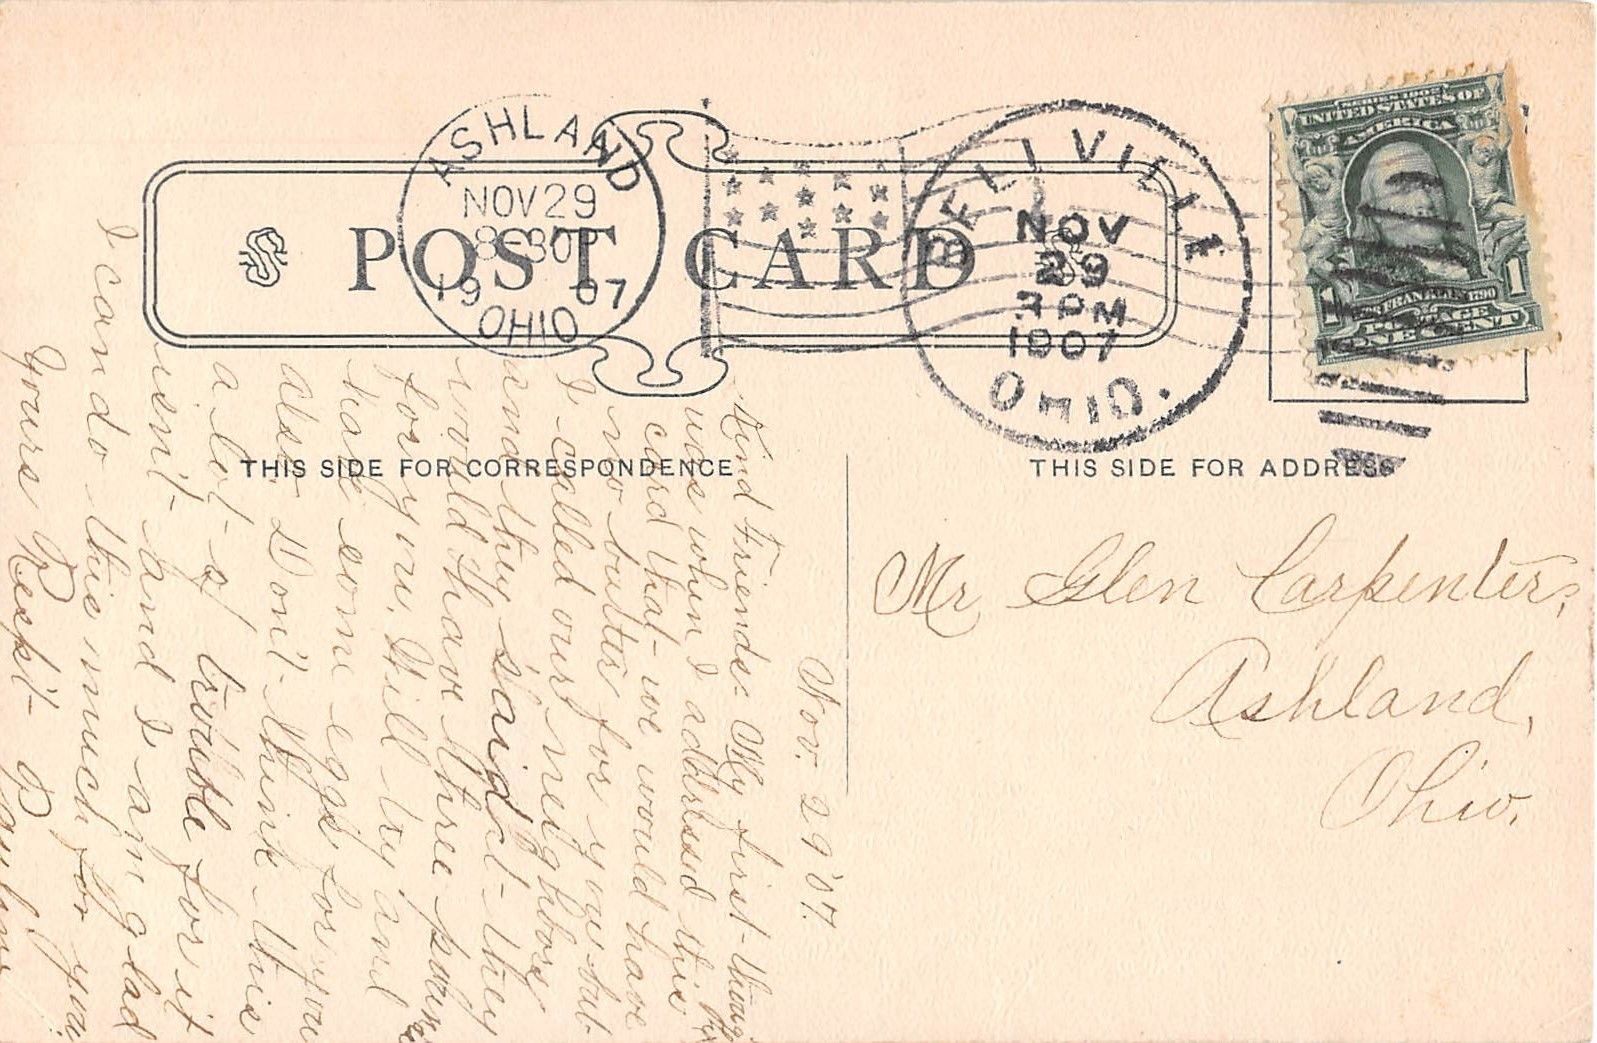 ASHLAND
NOV 29
8-30P
1907
OHIO
BELLVILLE
NOV
29
3 PM
1907
OHIO.
SERIES 1902
UNITED STATES OF
AMERICA
FRANKLIN 1790
1 1
POSTAGE
ONE CENT
POST CARD
THIS SIDE FOR CORRESPONDENCE
THIS SIDE FOR ADDRESS
Mr Glen Carpenter,
Ashland,
Ohio.
Nov. 29 '07.
Kind Friends: My first
was when I addressed this
card that we would have
no butter for you but
I called our neighbors
and they said they
would have three pound
for you. Will try and
have some eggs for you
also. Don't think this
a lot of trouble for it
isn't and I am glad
I can do this much for you
Yours Resp't